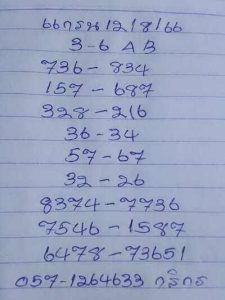 3-6 A B
736-834
157-687
328-216
36-34
57-67
32-26
8374-7736
7546-1587
6478-73651
057-1264633